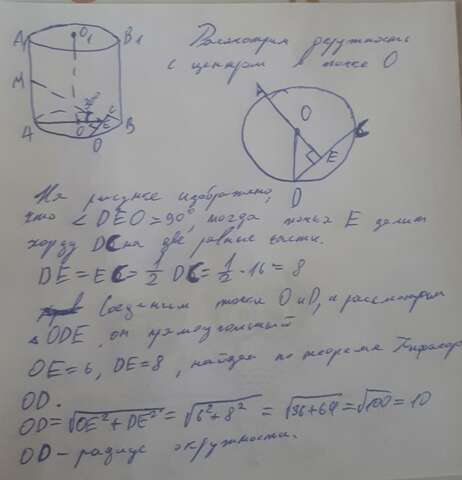 A₁ O₁ B₁
M
30°
A O E C B
D
Рассмотрим окружность
с центром в точке O
A
O
E C
D
На рисунке изображено,
что < DEO = 90°, тогда точка E делит
хорду DC на две равные части.
DE = EC = 1/2 DC = 1/2 · 16 = 8
Соединим точки O и D, и рассмотрим
△ ODE, он прямоугольный
OE = 6, DE = 8, найдем по теореме Пифагора
OD.
OD = √OE² + DE² = √6² + 8² = √36+64 = √100 = 10
OD – радиус окружности.